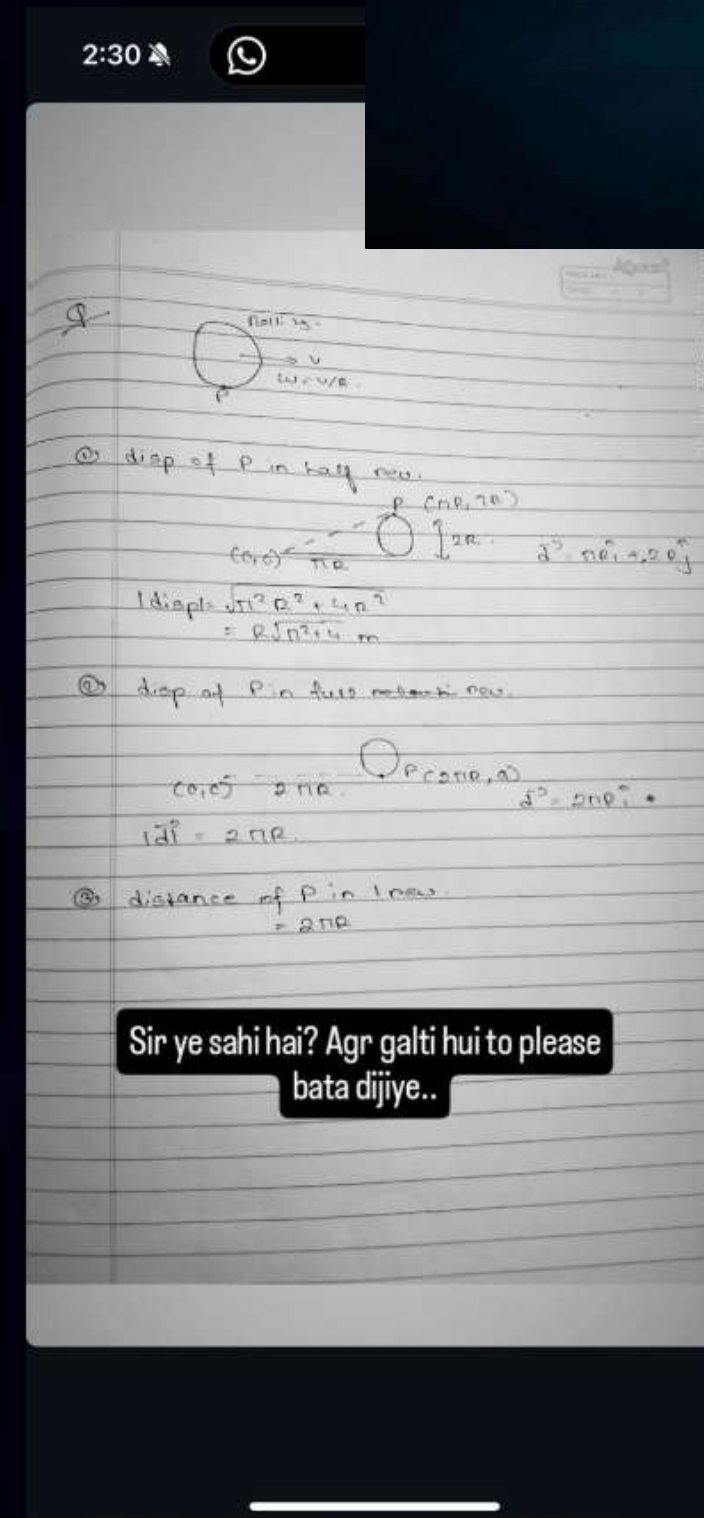 2:30
Q
Rolling.
V
ω = V/R.
P
① disp of P in half rev.
P (πR, 2R)
2R.
(0,0) πR
d⃗ = πRî + 2Rĵ
|disp| = √π²R² + 4R²
= R√π²+4 m
② disp of P in full rev.
P(2πR, 0)
(0,0) 2πR.
d⃗ = 2πRî
|d⃗| = 2πR.
③ distance of P in 1 rev.
= 2πR
Sir ye sahi hai? Agr galti hui to please
bata dijiye..